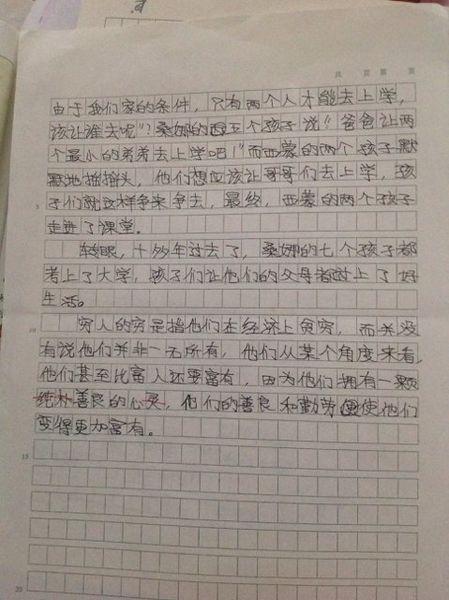 共 页 第 页
由于我们家的条件，只有两个人才能去上学，
该让谁去呢”？桑娜的五个孩子说“爸爸让两
个最小的弟弟去上学吧！”而西蒙的两个孩子默
默地摇摇头，他们想应该让哥哥们去上学，孩
5
子们就这样争来争去，最终，西蒙的两个孩子
走进了课堂。
转眼，十多年过去了，桑娜的七个孩子都
考上了大学，孩子们让他们的父母都过上了好
生活。
10
穷人的穷是指他们在经济上贫穷，而并没
有说他们并非一无所有，他们从某个角度来看，
他们甚至比富人还要富有，因为他们拥有一颗
纯朴善良的心灵，他们的善良和勤劳便使他们
变得更加富有。
15
20